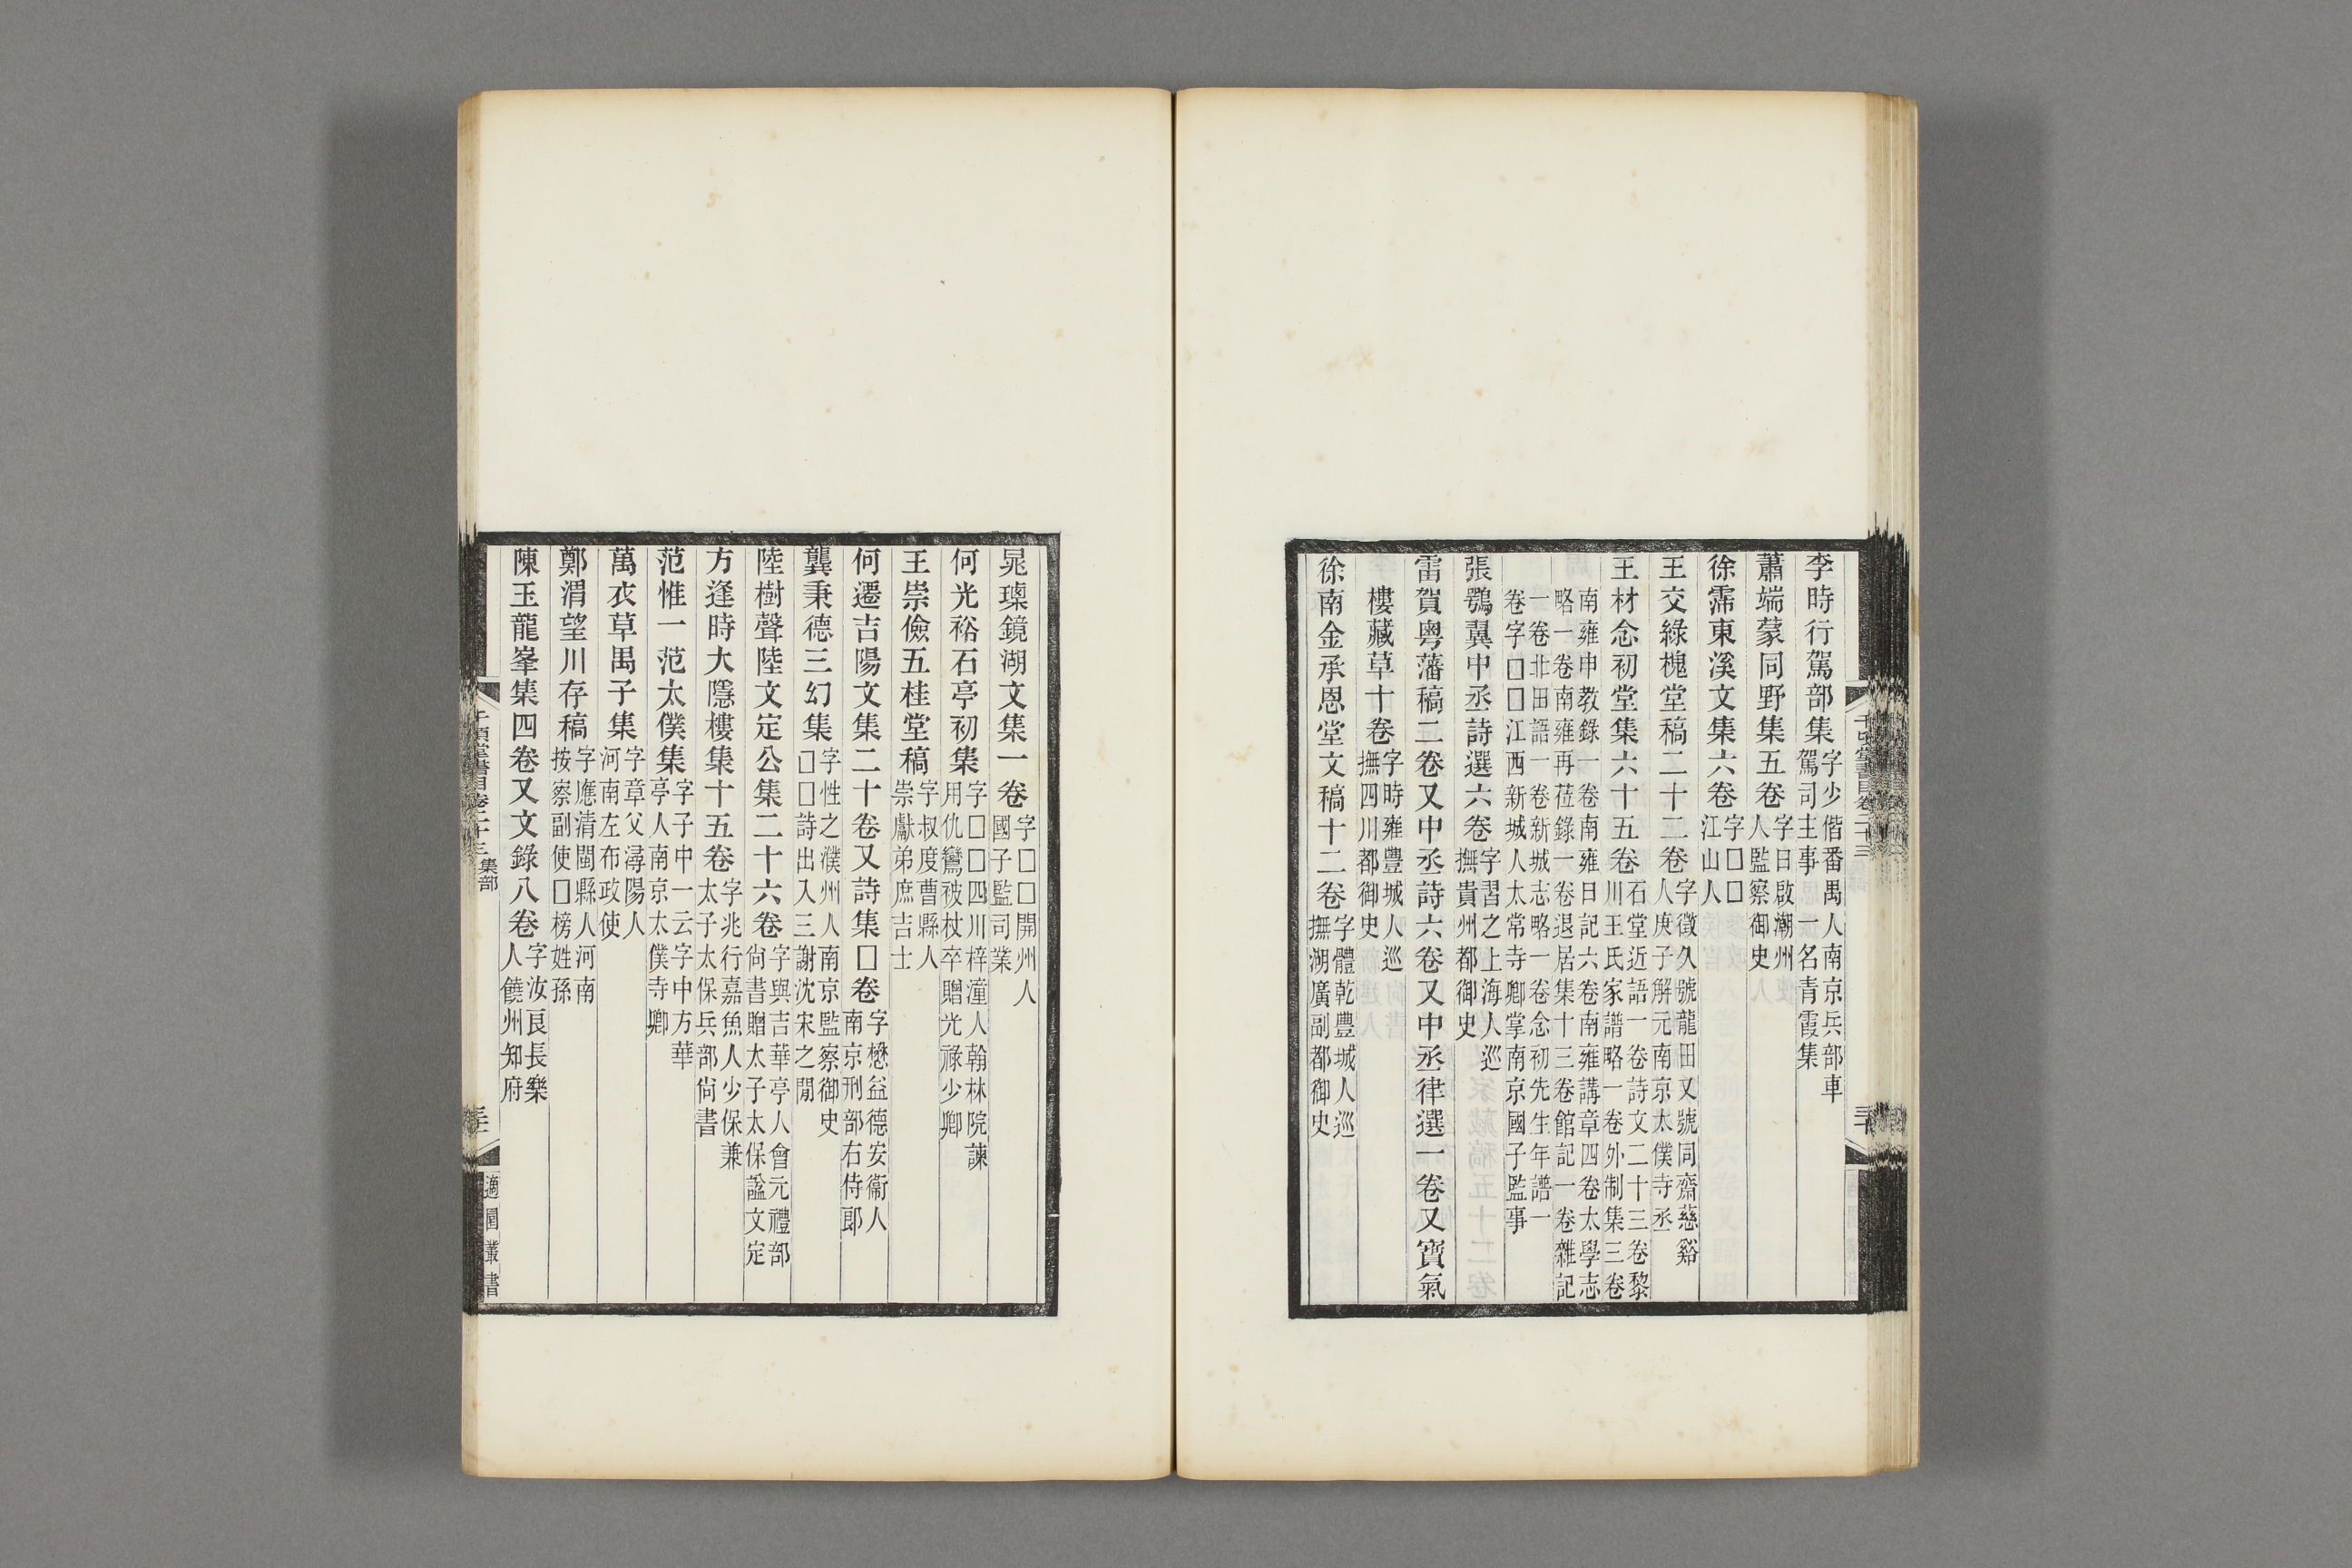 李時行駕部集字少偕番禺人南京兵部車駕司主事一名青霞集
蕭端蒙同野集五卷字日啟潮州人監察御史
徐霈東溪文集六卷字□□江山人
王交綠槐堂稿二十二卷字徵久號龍田又號同齋慈谿人庚子解元南京太僕寺丞
王材念初堂集六十五卷石堂近語一卷詩文二十三卷黎川王氏家譜略一卷外制集三卷
南雍申教錄一卷南雍日記六卷南雍講章四卷太學志略一卷南雍再莅錄一卷退居集十三卷館記一卷雜記
一卷北田語一卷新城志略一卷念初先生年譜一卷字□□江西新城人太常寺卿掌南京國子監事
張鶚翼中丞詩選六卷字習之上海人巡撫貴州都御史
雷賀粵藩稿二卷又中丞詩六卷又中丞律選一卷又寶氣
樓藏草十卷字時雍豐城人巡撫四川都御史
徐南金承恩堂文稿十二卷字體乾豐城人巡撫湖廣副都御史
晁瑮鏡湖文集一卷字□□開州人國子監司業
何光裕石亭初集字□□四川梓潼人翰林院諫用仇鸞被杖卒贈光祿少卿
王崇儉五桂堂稿字叔度曹縣人崇獻弟庶吉士
何遷吉陽文集二十卷又詩集□卷字懋益德安衞人南京刑部右侍郎
龔秉德三幻集字性之濮州人南京監察御史□□詩出入三謝沈宋之閒
陸樹聲陸文定公集二十六卷字與吉華亭人會元禮部尙書贈太子太保諡文定
方逢時大隱樓集十五卷字兆行嘉魚人少保兼太子太保兵部尙書
范惟一范太僕集字子中一云字中方華亭人南京太僕寺卿
萬衣草禺子集字章父潯陽人河南左布政使
鄭渭望川存稿字應清閩縣人河南按察副使□榜姓孫
陳玉龍峯集四卷又文錄八卷字汝良長樂人饒州知府
千頃堂書目卷二十三 集部
適園叢書